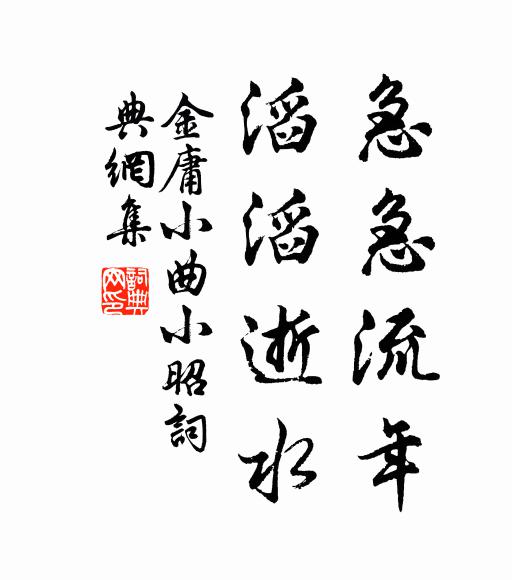 急急流年
滔滔逝水
金庸小曲小昭詞
典網集
詞典
网印